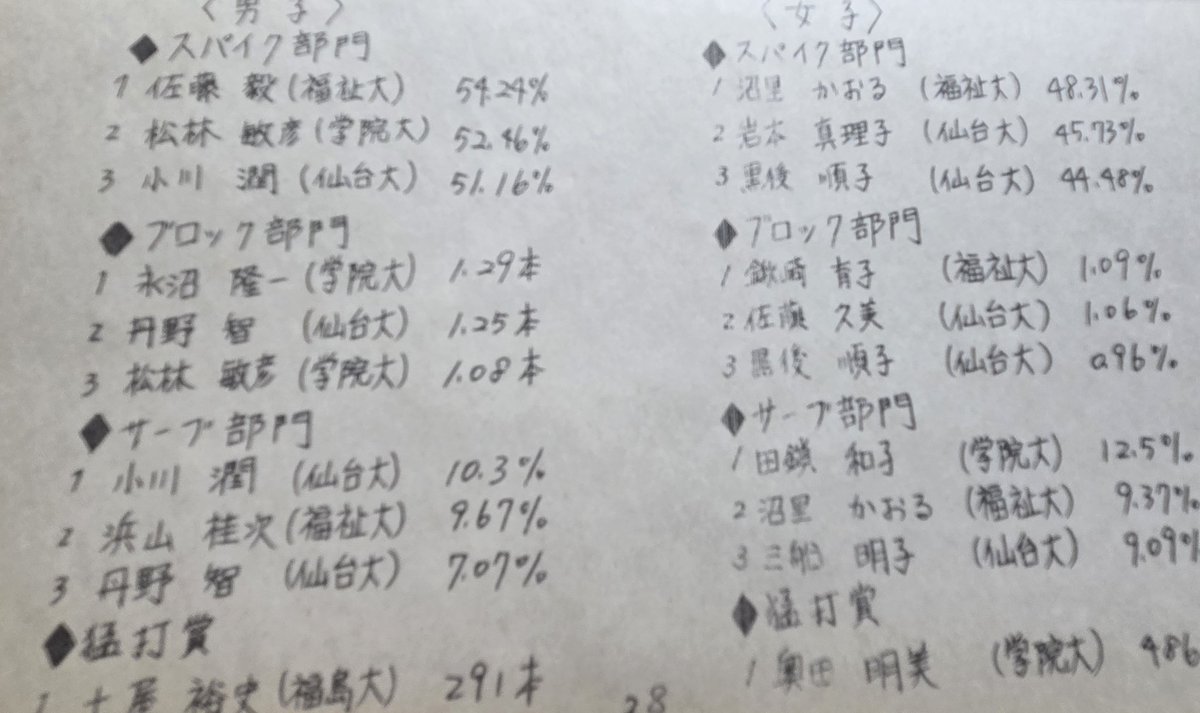 〈男子〉
◆スパイク部門
1 佐藤 毅(福祉大) 54.24%
2 松林 敏彦(学院大) 52.46%
3 小川 潤(仙台大) 51.16%
◆ブロック部門
1 永沼 隆一(学院大) 1.29本
2 丹野 智(仙台大) 1.25本
3 松林 敏彦(学院大) 1.08本
◆サーブ部門
1 小川 潤(仙台大) 10.3%
2 浜山 桂次(福祉大) 9.67%
3 丹野 智(仙台大) 7.07%
◆猛打賞
1 土屋 裕史(福島大) 291本
〈女子〉
◆スパイク部門
1 沼里 かおる(福祉大) 48.31%
2 岩本 真理子(仙台大) 45.73%
3 黒後 順子(仙台大) 44.48%
◆ブロック部門
1 鍬崎 育子(福祉大) 1.09%
2 佐藤 久美(仙台大) 1.06%
3 黒後 順子(仙台大) 0.96%
◆サーブ部門
1 田鎖 和子(学院大) 12.5%
2 沼里 かおる(福祉大) 9.37%
3 三船 明子(仙台大) 9.09%
◆猛打賞
1 奥田 明美(学院大) 486
28